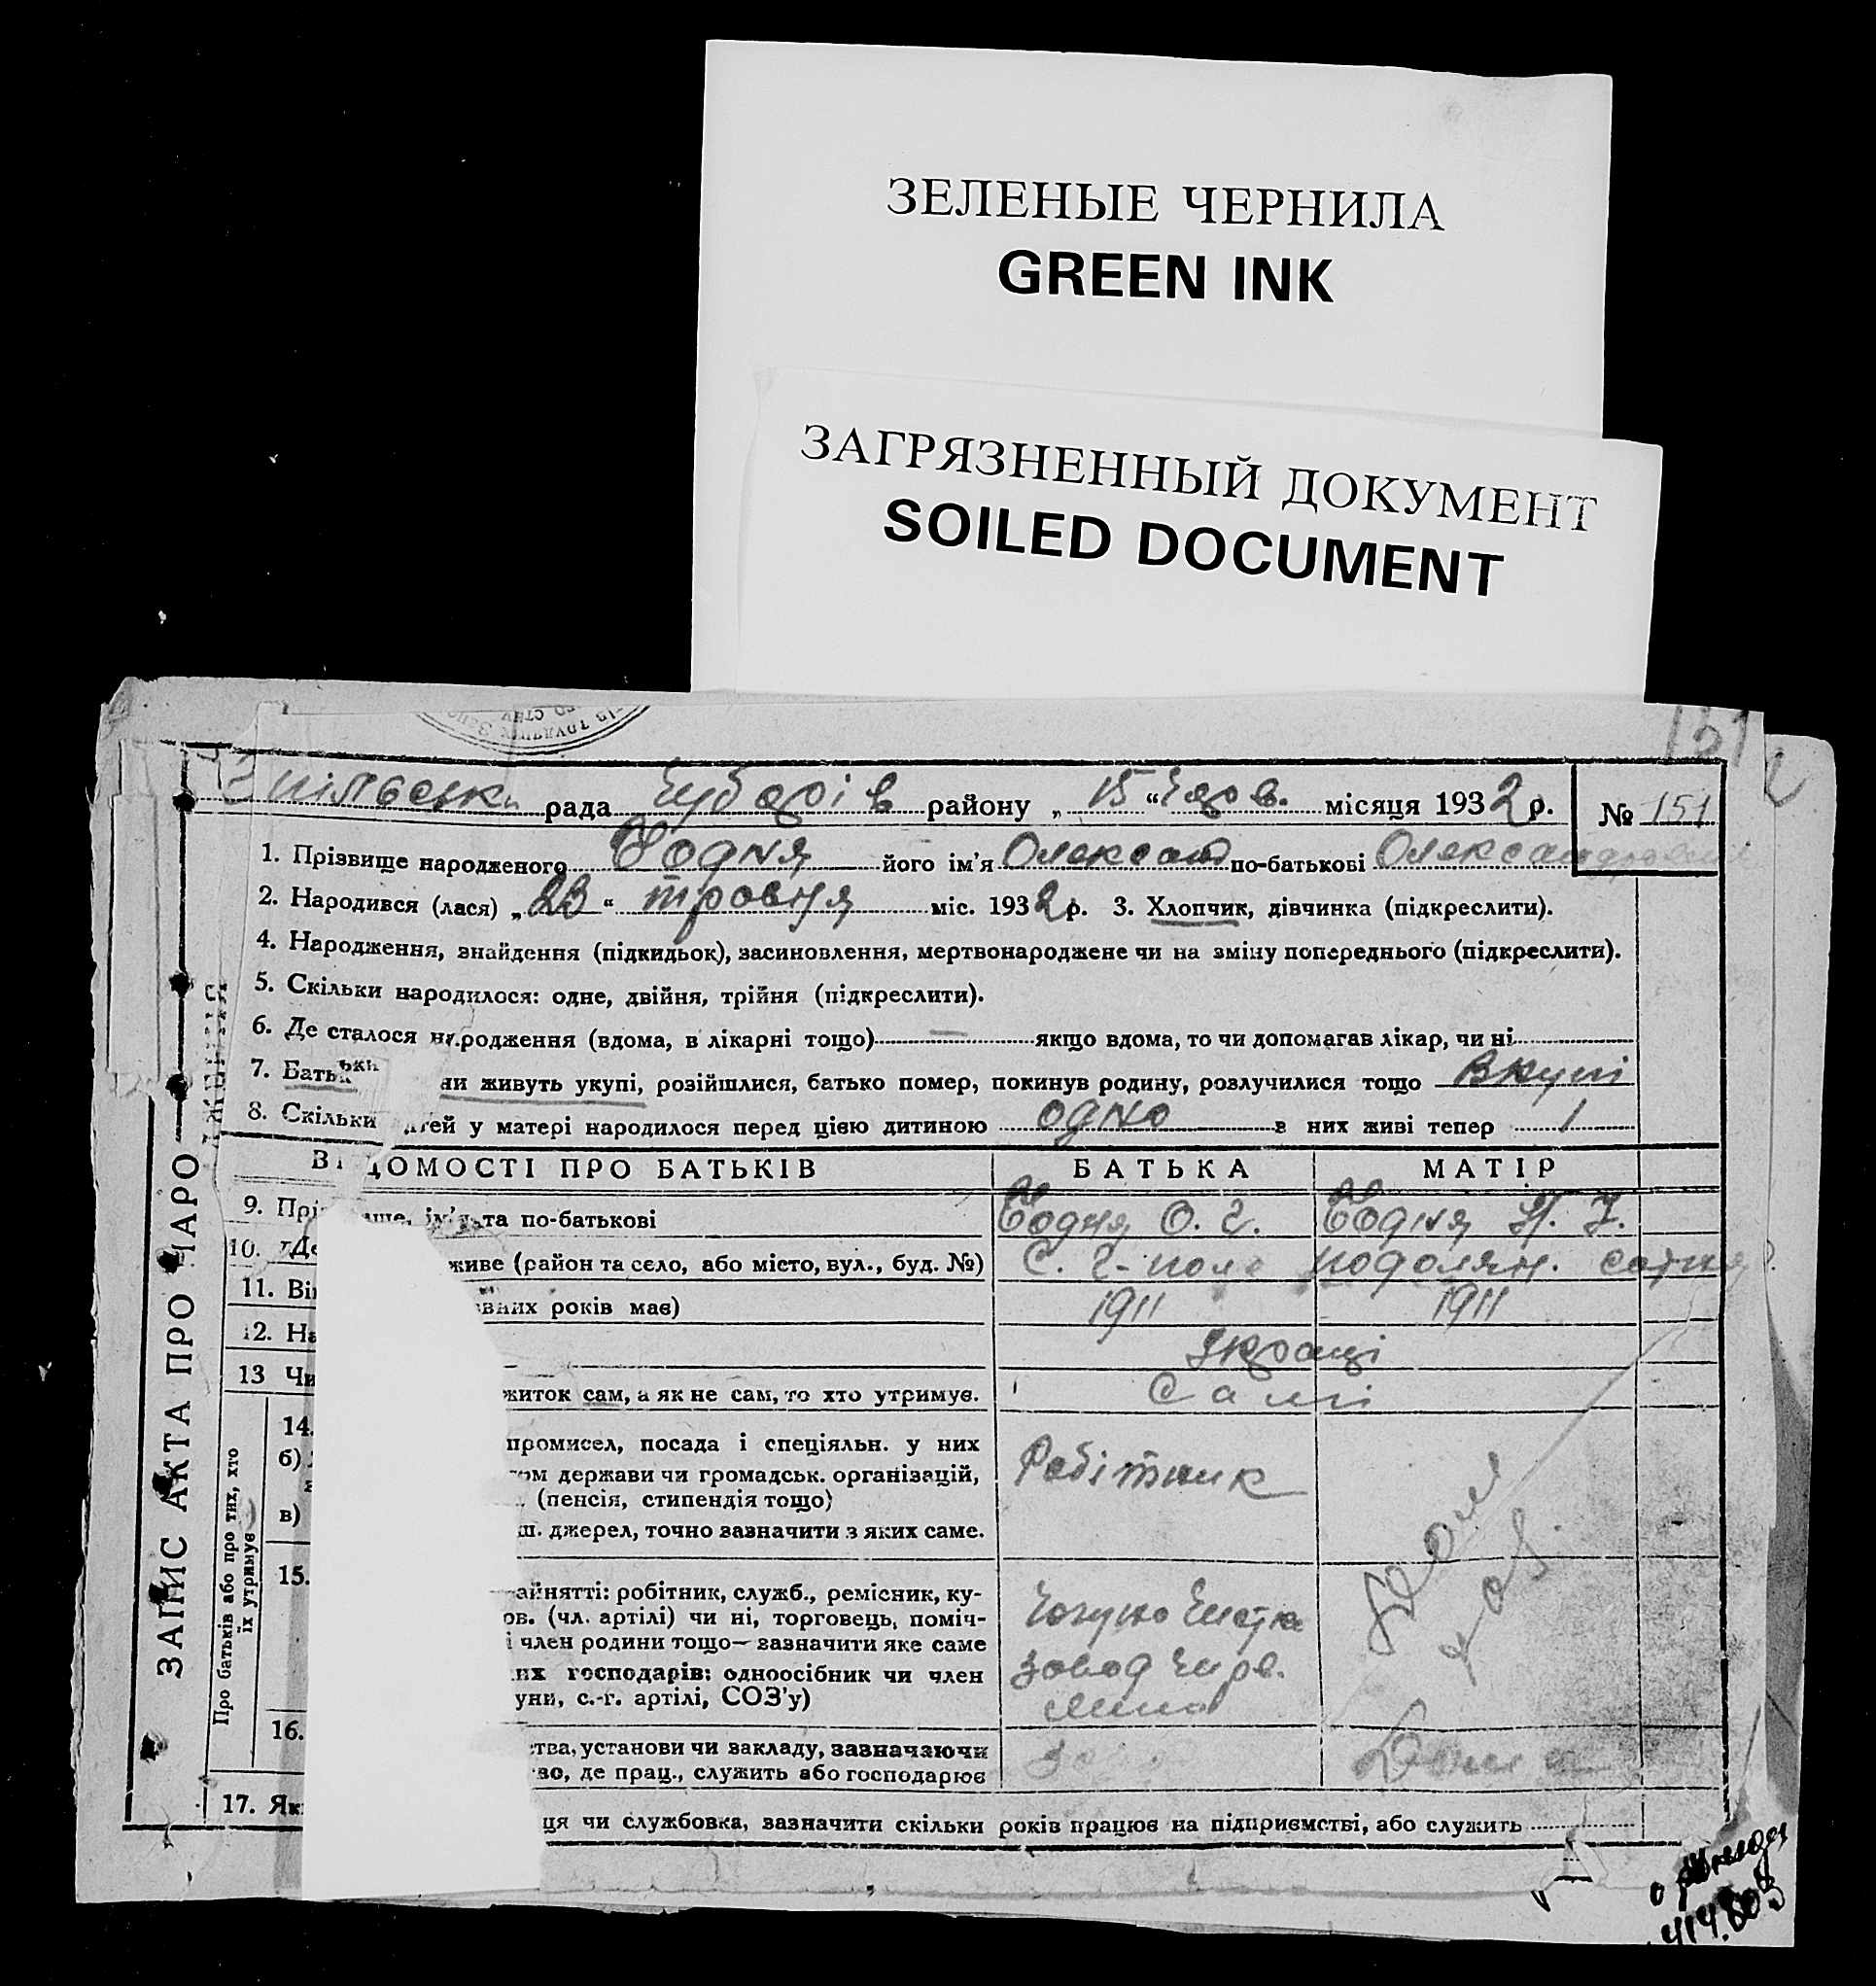 ЗЕЛЕНЫЕ ЧЕРНИЛА
GREEN INK
ЗАГРЯЗНЕННЫЙ ДОКУМЕНТ
SOILED DOCUMENT
рада Чубарів району „ 15 “ місяця 1932 р. № 151
1. Прізвище народженого Бодня його ім’я Олександ по-батькові
2. Народився (лася) „ 23 “ травня міс. 1932 р. 3. Хлопчик, дівчинка (підкреслити).
4. Народження, знайдення (підкидьок), засиновлення, мертвонароджене чи на зміну попереднього (підкреслити).
5. Скільки народилося: одне, двійня, трійня (підкреслити).
6. Де сталося народження (вдома, в лікарні тощо) — якщо вдома, то чи допомагав лікар, чи ні
7. Батьки живуть укупі, розійшлися, батько помер, покинув родину, розлучилися тощо вкупі
8. Скільки тей у матері народилося перед цією дитиною одно в них живі тепер 1
ЗАПИС АКТА ПРО НАРО
ВІДОМОСТІ ПРО БАТЬКІВ БАТЬКА МАТІР
9. Прі ім’я та по-батькові Бодня О. Г. Бодня
10. Де живе (район та село, або місто, вул., буд. №) подолян. сотня
11. Ві вних років має) 1911 1911
12. На Украці
13 Чи житок сам, а як не сам, то хто утримує. Самі
Про батьків або про тих, хто їх утримує
14. промисел, посада і спеціяльн. у них Робітник
б) ом держави чи громадськ. організацій,
(пенсія, стипендія тощо)
в) ш. джерел, точно зазначити з яких саме.
15. айнятті: робітник, служб., ремісник, ку-
ов. (чл. артілі) чи ні, торговець, поміч-
і член родини тощо — зазначити яке саме
их господарів: одноосібник чи член завод
уни, с.-г. артілі, СОЗ’у)
16. тва, установи чи закладу, зазначаючи
во, де прац., служить або господарює Дома
17. Як ця чи службовка, зазначити скільки років працює на підприємстві, або служить